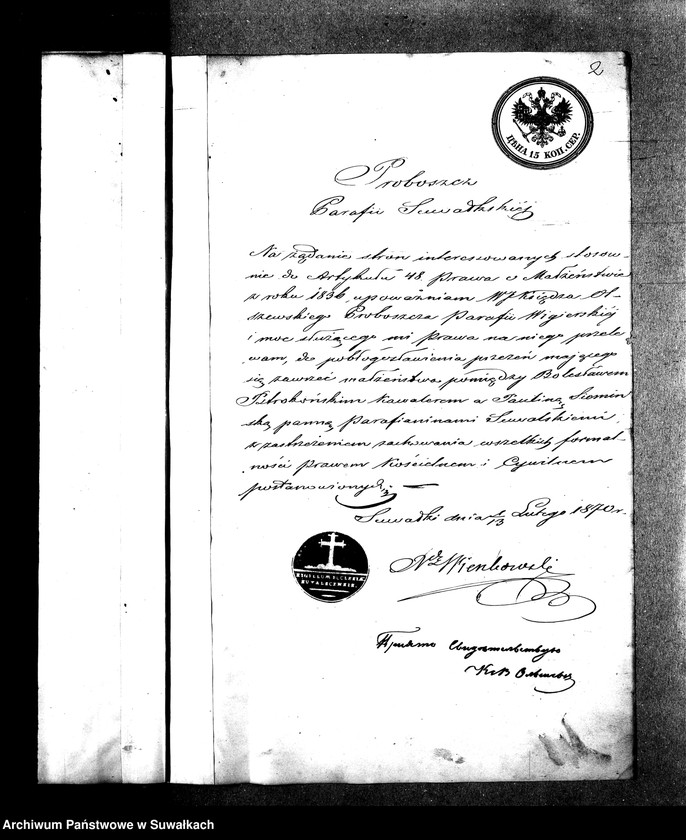 2
ЦѢНА 15 КОП. СЕР.
Proboszcz
Parafii Suwałkskiéj
Na żądanie stron interessowanych stosow-
nie do Artykułu 48 Prawa o Małżeństwie
z roku 1836, upoważniam WJXiędza Ol-
szewskiego Proboszcza Parafii Wigierskiéj
i moc służącego mi prawa na niego przele
wam, do pobłogosławienia przezeń mającego
się zawrzéć małżeństwa pomiędzy Bolesławem
Pietrokońskim kawalerem a Pauliną Siemin
ską panną Parafianinami Suwalskiemi,
z zastrzeżeniem zachowania wszelkich formal
ności prawem Kościelnem i Cywilnem
postanowionych.
Suwałki dnia 1/13 Lutego 1870 r.
SIGILLUM ECCLESIÆ
SUVALSCENSIS.
Wienkowski